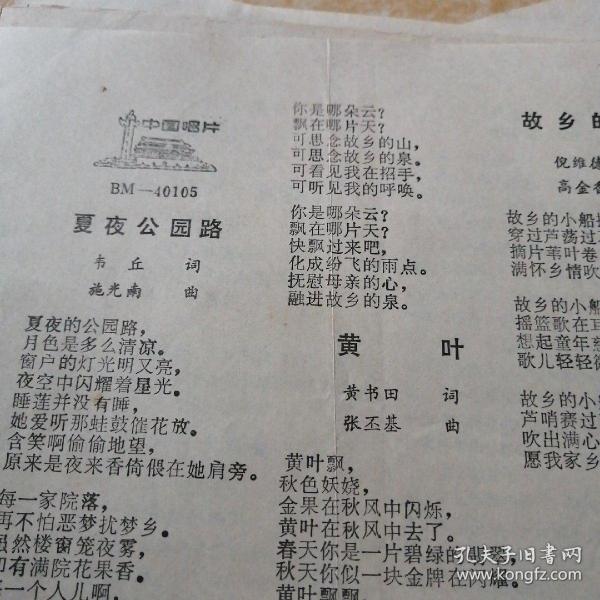 中国唱片
BM—40105
夏夜公园路
韦丘 词
施光南 曲
夏夜的公园路，
月色是多么清凉。
窗户的灯光明又亮，
夜空中闪耀着星光。
睡莲并没有睡，
她爱听那蛙鼓催花放。
含笑啊偷偷地望，
原来是夜来香倚偎在她肩旁。
每一家院落，
再不怕恶梦扰梦乡。
虽然楼窗笼夜雾，
却有满院花果香。
一个人儿啊，
你是哪朵云？
飘在哪片天？
可思念故乡的山，
可思念故乡的泉。
可看见我在招手，
可听见我的呼唤。
你是哪朵云？
飘在哪片天？
快飘过来吧，
化成纷飞的雨点。
抚慰母亲的心，
融进故乡的泉。
黄叶
黄书田 词
张丕基 曲
黄叶飘，
秋色妖娆，
金果在秋风中闪烁，
黄叶在秋风中去了。
春天你是一片碧绿的
秋天你似一块金牌在闪耀。
黄叶飘飘，
故乡的
倪维德
高金香
故乡的小船
穿过芦荡过
摘片苇叶卷
满怀乡情吹
故乡的小船
摇篮歌在耳
想起童年
歌儿轻轻
故乡的小
芦哨赛过
吹出满心
愿我家乡
孔夫子旧书网
www.kongfz.com